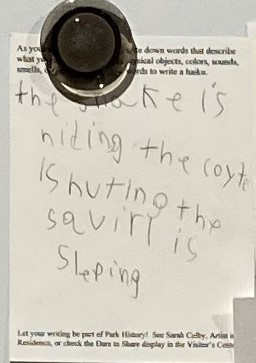 As you write down words that describe
what y sical objects, colors, sounds,
smells, words to write a haiku.
the snake is
hiding the coyte
is huting the
sqvirl is
Sleping
Let your writing be part of Park History! See Sarah Colby, Artist
Residence, or check the Dare to Share display in the Visitor's Cente